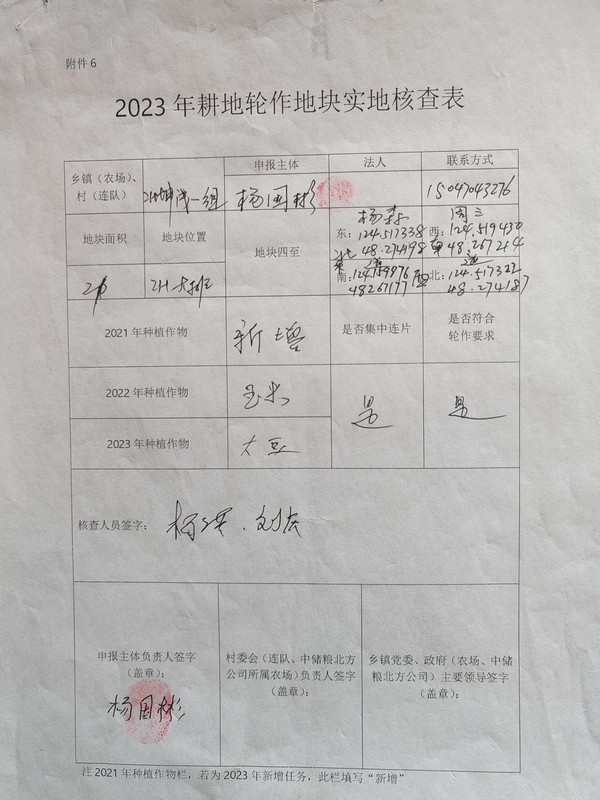 附件6
2023年耕地轮作地块实地核查表
乡镇（农场）、村（连队）
一组
申报主体
杨国彬
法人
联系方式
15047043276
地块面积
地块位置
地块四至
杨森
东：124.517338
48.274198
西：124.519430
48.267214
南：
48267177
北：124.517322
48.274187
2021年种植作物
新增
是否集中连片
是否符合轮作要求
2022年种植作物
玉米
是
是
2023年种植作物
大豆
核查人员签字：
申报主体负责人签字
（盖章）：
杨国彬
村委会（连队、中储粮北方
公司所属农场）负责人签字
（盖章）：
乡镇党委、政府（农场、中储
粮北方公司）主要领导签字
（盖章）：
注 2021年种植作物栏，若为2023年新增任务，此栏填写“新增”